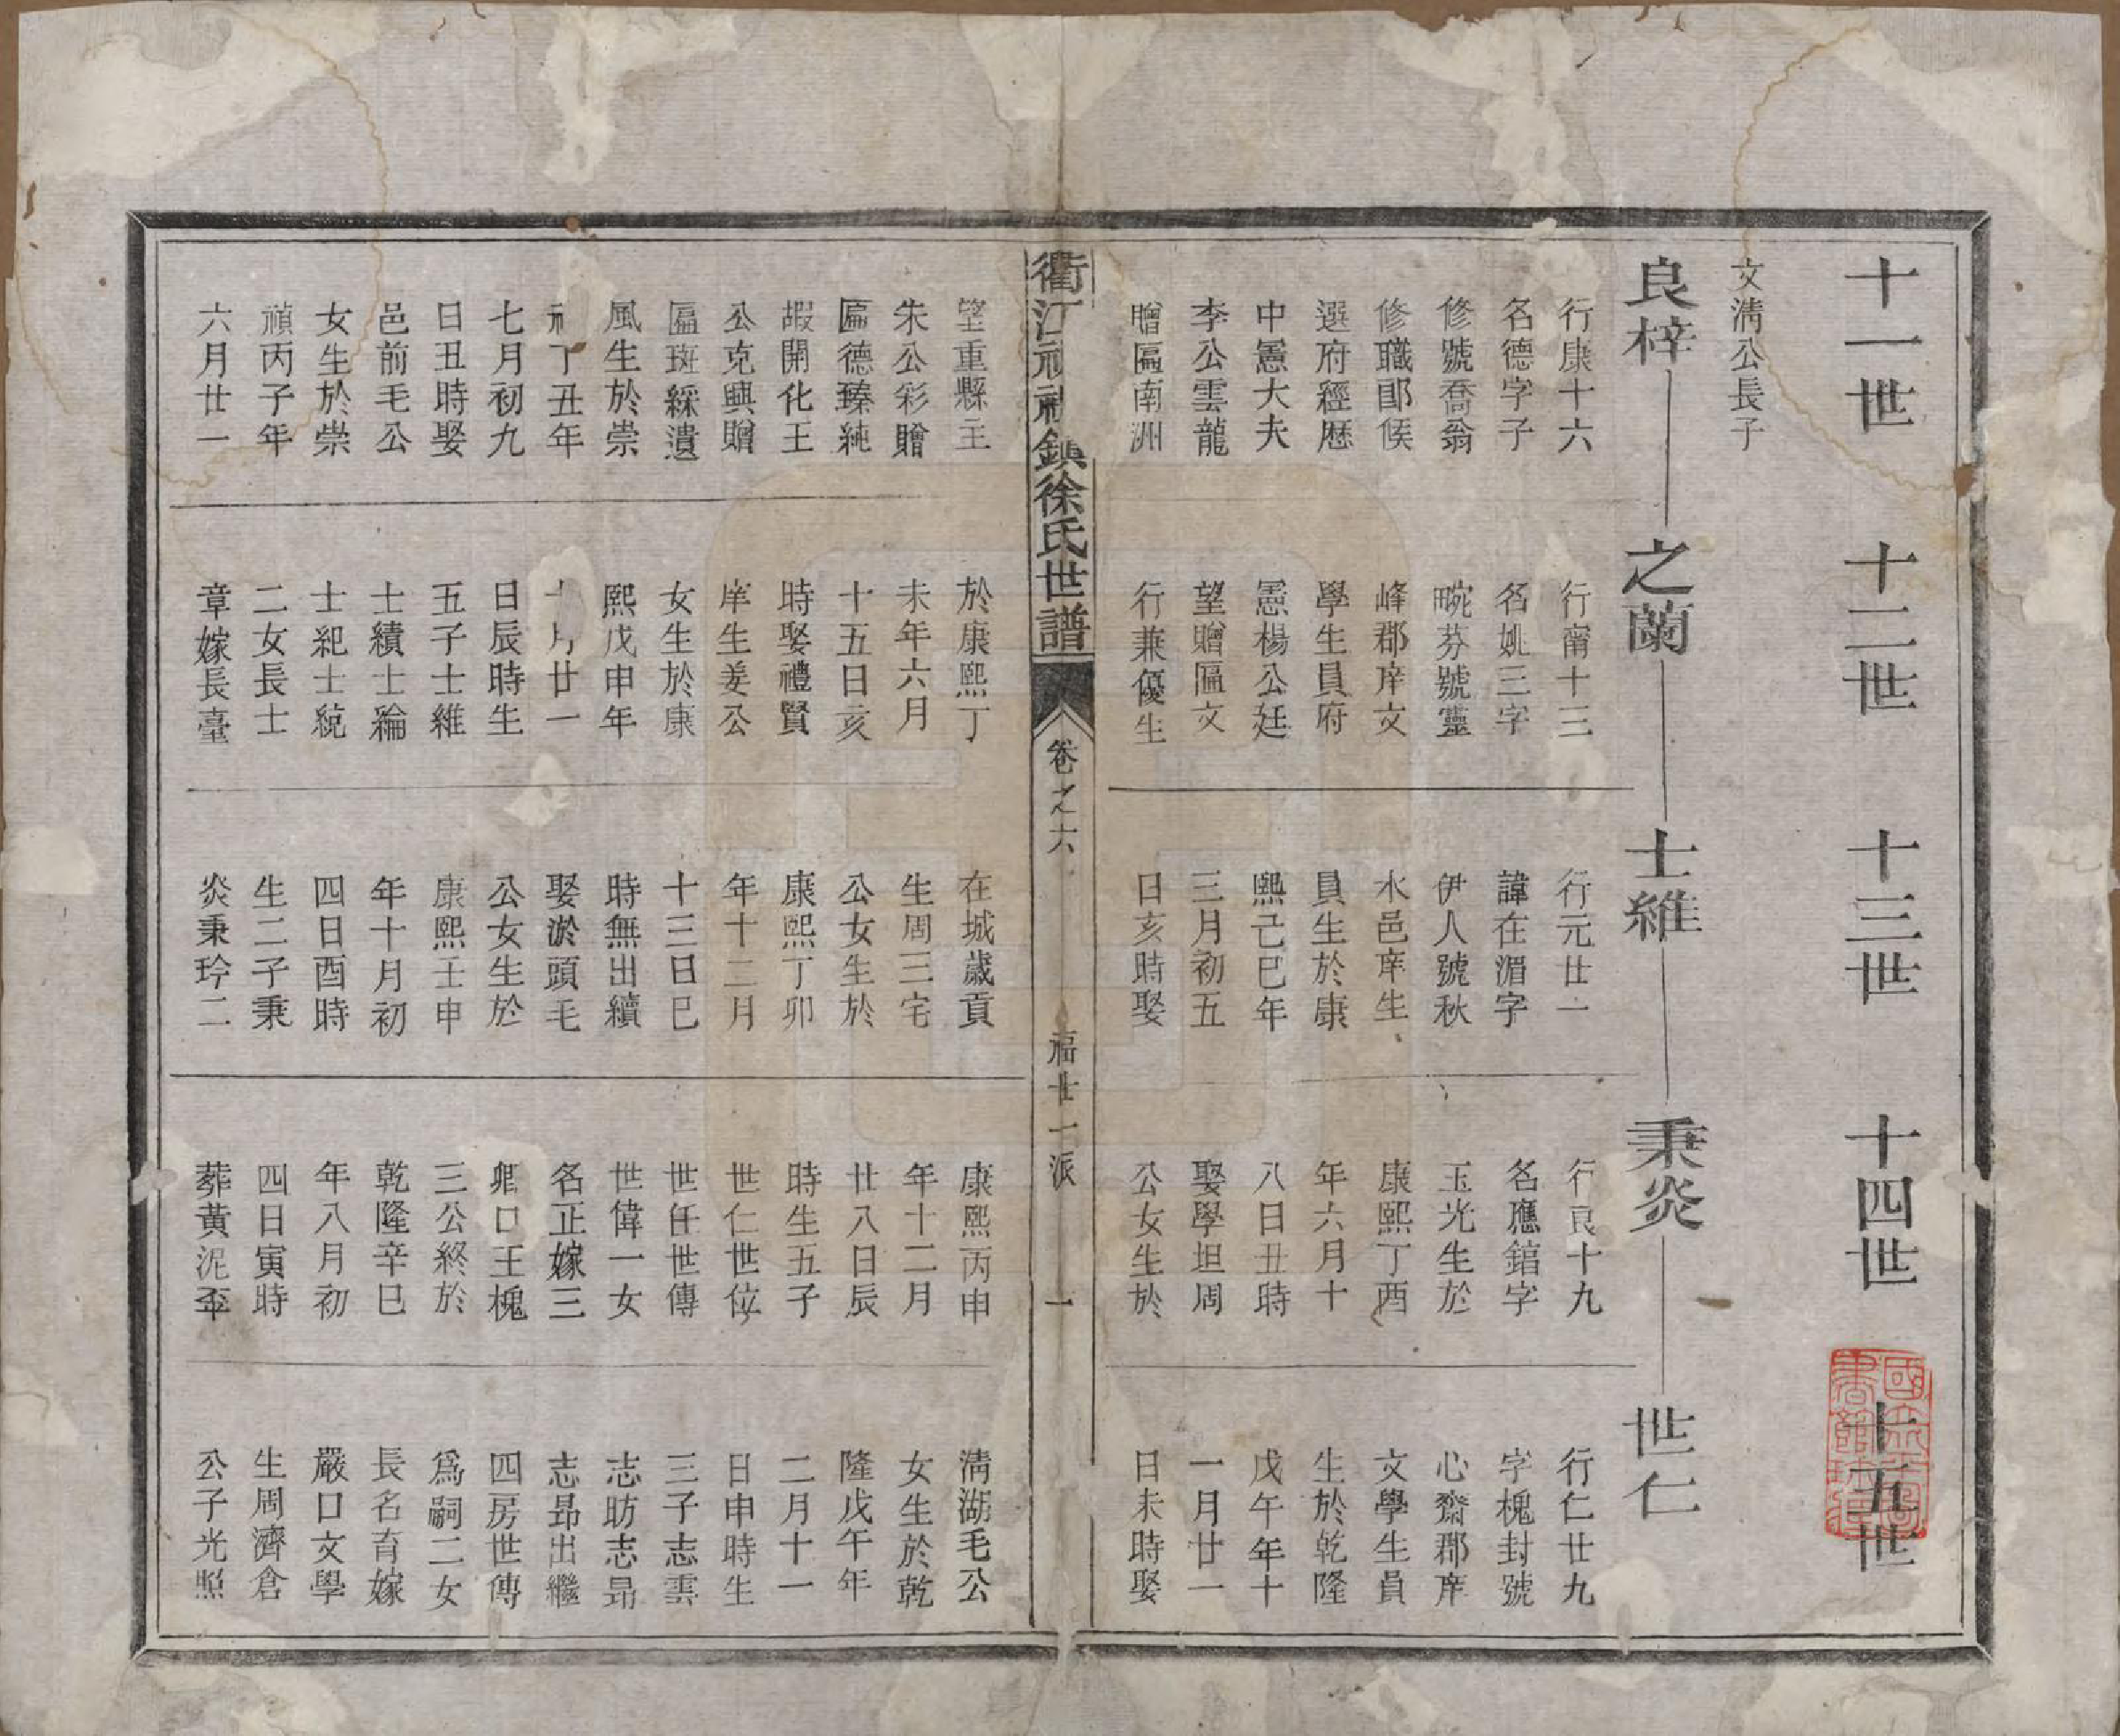 十一世
十二世
十三世
十四世
十五世
文淸公長子
良梓
之蘭
士維
秉炎
世仁
行康十六
名德字子
修號喬翁
修職郎候
選府經歷
中憲大夫
李公雲龍
贈匾南洲
行甯十三
名姚三字
畹芬號靈
峰郡庠文
學生員府
憲楊公廷
望贈匾文
行兼優生
行元廿一
諱在湄字
伊人號秋
水邑庠生
員生於康
熙己巳年
三月初五
日亥時娶
行良十九
名應錧字
玉光生於
康熙丁酉
年六月十
八日丑時
娶學坦周
公女生於
行仁廿九
字槐封號
心齋郡庠
文學生員
生於乾隆
戊午年十
一月廿一
日未時娶
衢江
鎭徐氏世譜
卷之六
福廿一派
一
望重縣主
朱公彩贈
匾德臻純
嘏開化王
公克興贈
匾斑綵遺
風生於崇
丁丑年
七月初九
日丑時娶
邑前毛公
女生於崇
禎丙子年
六月廿一
於康熙丁
未年六月
十五日亥
時娶禮賢
庠生姜公
女生於康
熙戊申年
月廿一
日辰時生
五子士維
士績士綸
士紀士統
二女長士
章嫁長臺
在城歲貢
生周三宅
公女生於
康熙丁卯
年十二月
十三日巳
時無出續
娶淤頭毛
公女生於
康熙壬申
年十月初
四日酉時
生二子秉
炎秉玪二
康熙丙申
年十二月
廿八日辰
時生五子
世仁世位
世任世傳
世偉一女
名正嫁三
卿口王槐
三公終於
乾隆辛巳
年八月初
四日寅時
葬黃泥坖
淸湖毛公
女生於乾
隆戊午年
二月十一
日申時生
三子志雲
志昉志昂
志昂出繼
四房世傳
爲嗣二女
長名育嫁
嚴口文學
生周濟倉
公子光照